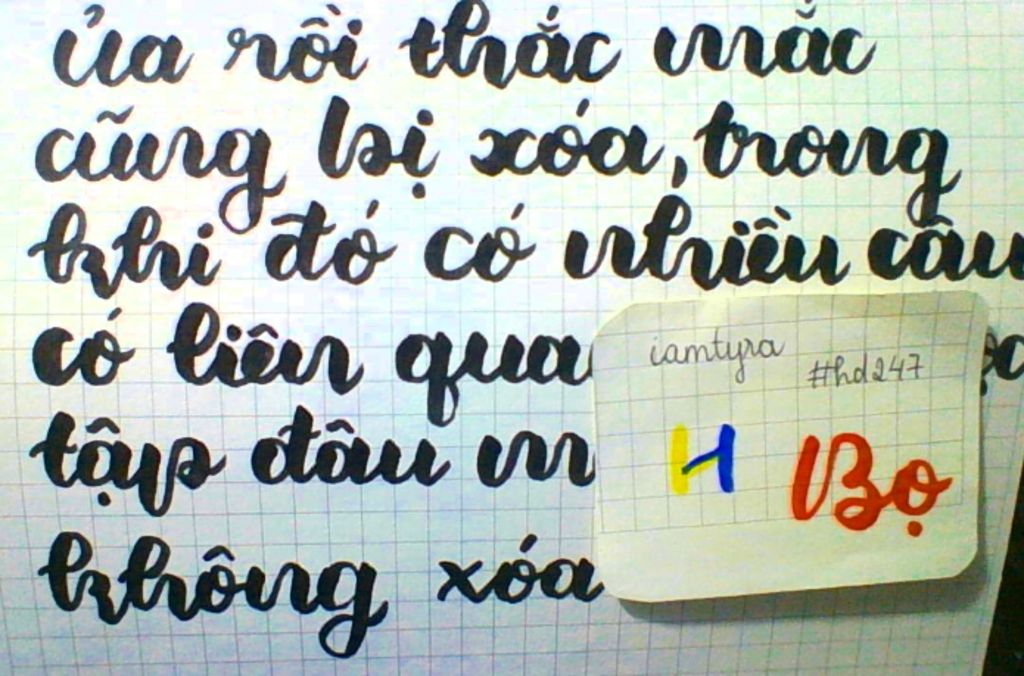 ủa rồi thắc mắc
cũng bị xóa, trong
khi đó có nhiều câu
có liên qua
tập đâu m
không xóa
iamtyra
#hd247
H Bọ